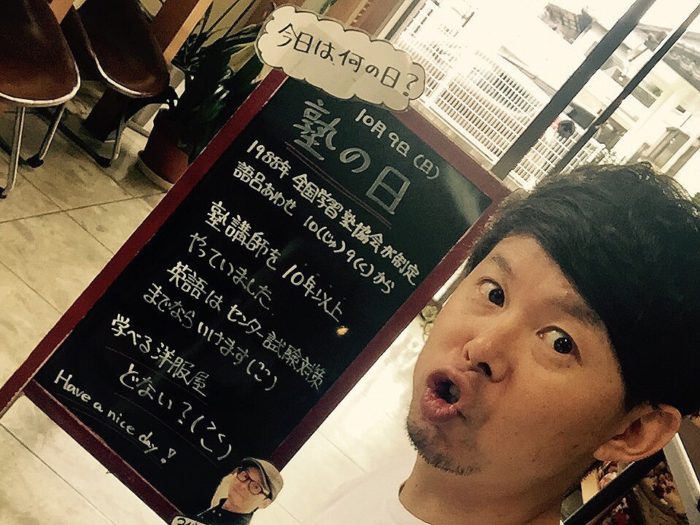 今日は何の日?
10月9日(日)
塾の日
1988年 全国学習塾協会が制定
語呂あわせ 10(じゅ)9(く)から
塾講師を10年以上
やっていました
英語はセンター試験対策
までならいけます(ご)
学べる洋服屋
どない?(ごく)
Have a nice day!